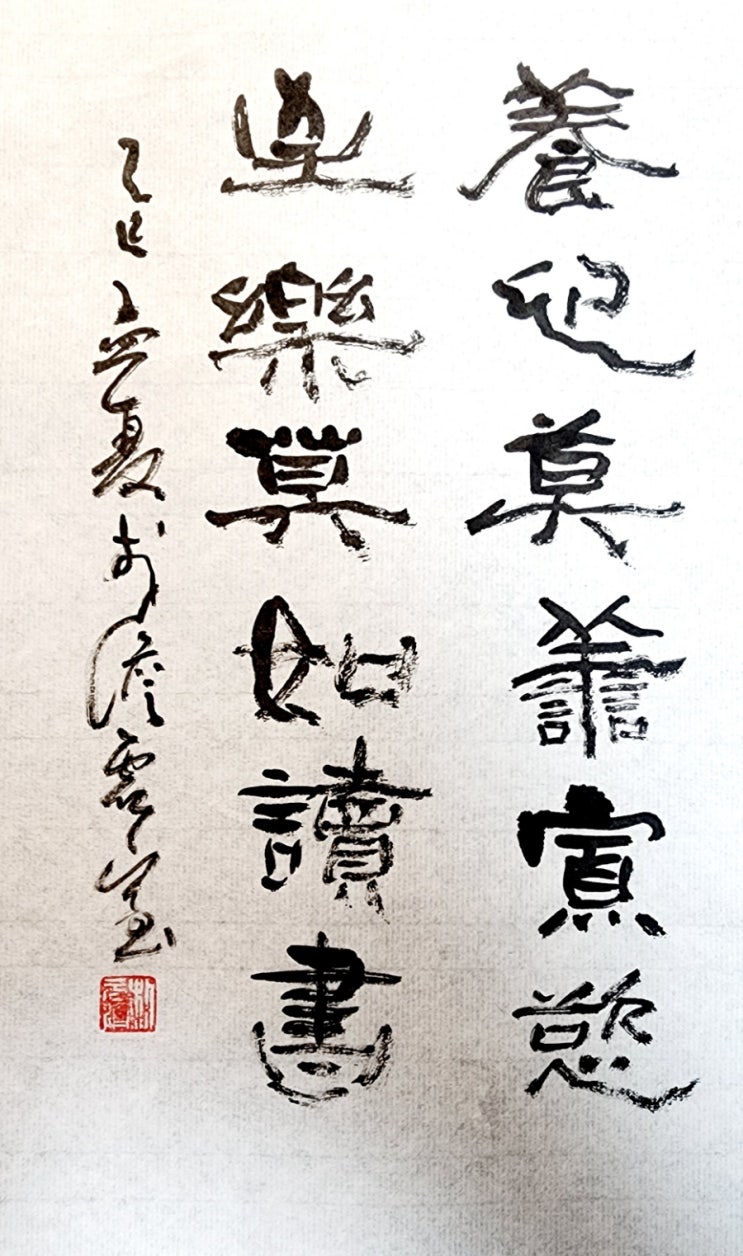 養心莫善寡慾
至樂莫如讀書
乙巳立夏於澹雲堂